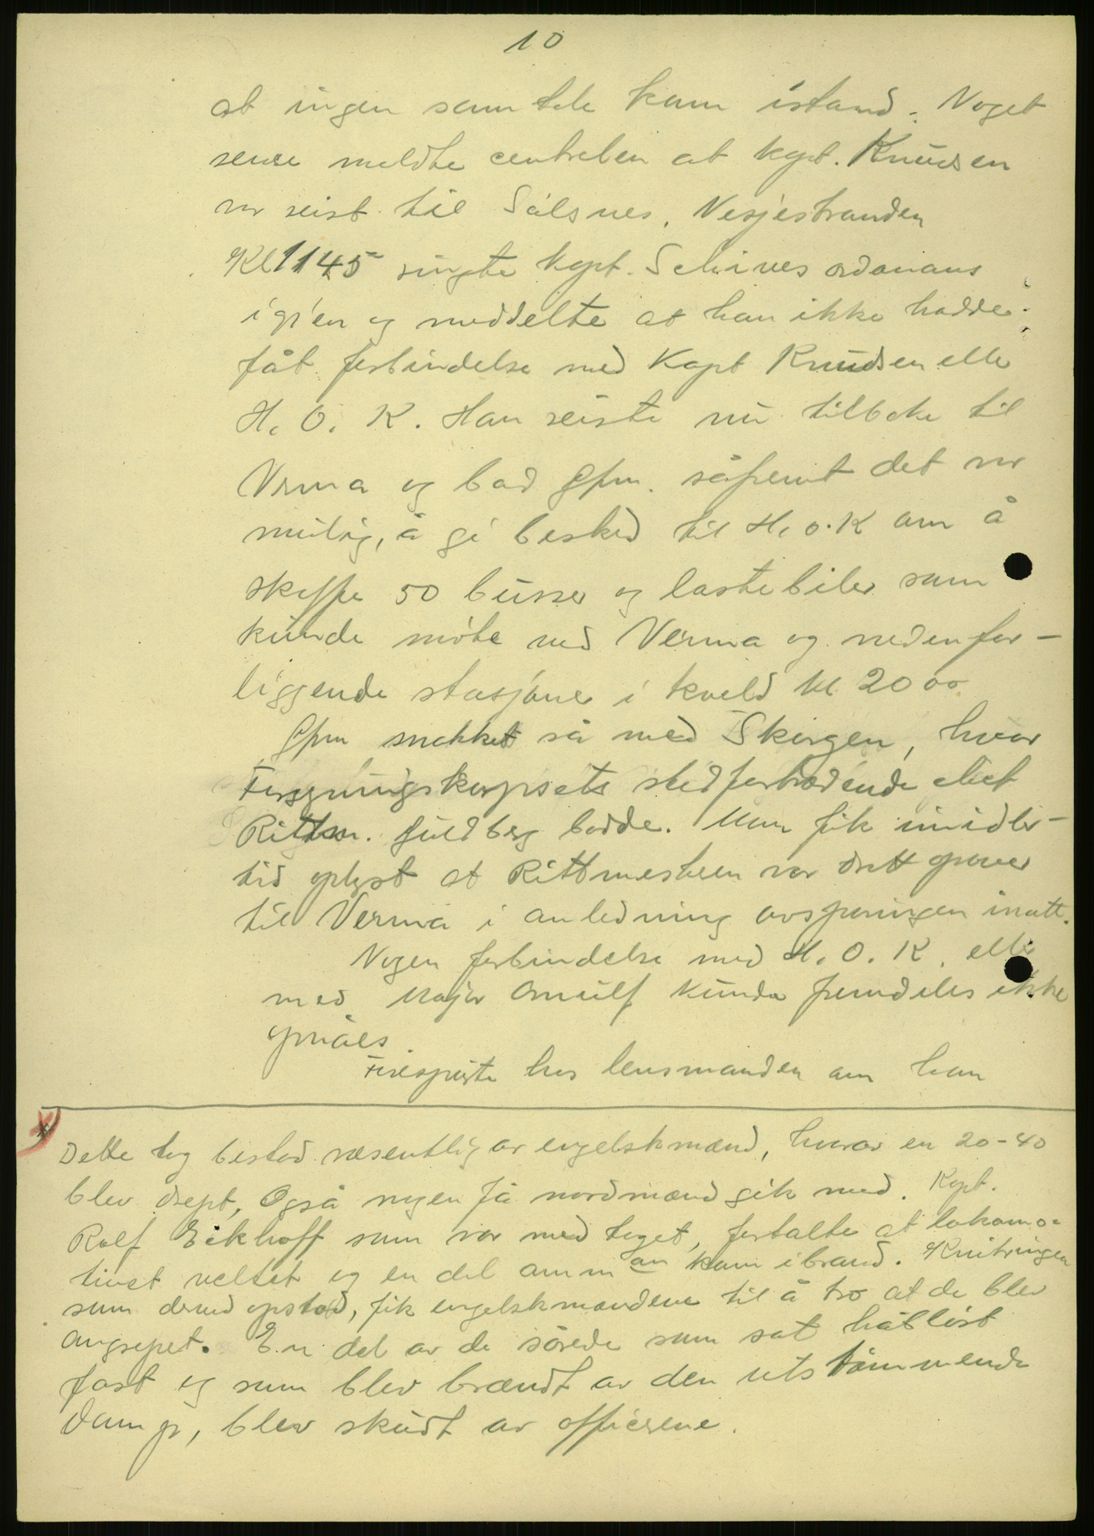 10
at ingen samtale kom istand. Noget
senere meldte centralen at kapt. Knudsen
var reist til Sølsnes, Vesjestranden
Kl 1145 ringte kapt. Schives ordonans
igjen og meddelte at han ikke hadde
fåt forbindelse med Kapt Knudsen eller
H. O. K. Han reiste nu tilbake til
Verma og bad Gfm. såfremt det var
mulig, å gi besked til H. O. K om å
skaffe 50 busser og lastebiler som
kunde møte ved Verma og nedenfor-
liggende stasjoner i kveld kl 2000.
Gfm snakket så med Skorgen, hvor
Forsyningskorpsets stedfortrædende chef
Rittm. Guldberg bodde. Man fik imidler-
tid oplyst at Rittmesteren var dratt opover
til Verma i anledning avsporingen inatt.
Nogen forbindelse med H. O. K. eller
med Major Ornulf kunde fremdeles ikke
opnåes.
Forespurte hos lensmanden om han
x) Dette tog bestod væsentlig av engelskmænd, hvorav en 20-40
blev dræpt, Også nogen få nordmænd gik med. Kapt.
Rolf Eckhoff som var med toget, fortalte at lokomo-
tivet veltet og en del amm an kom i brand. Knitringen
som derved opstod, fik engelskmændene til å tro at de blev
angrepet. En del av de sårede som sat håbløst
fast og som blev brændt av den utstrømmende
damp, blev skudt av officerene.